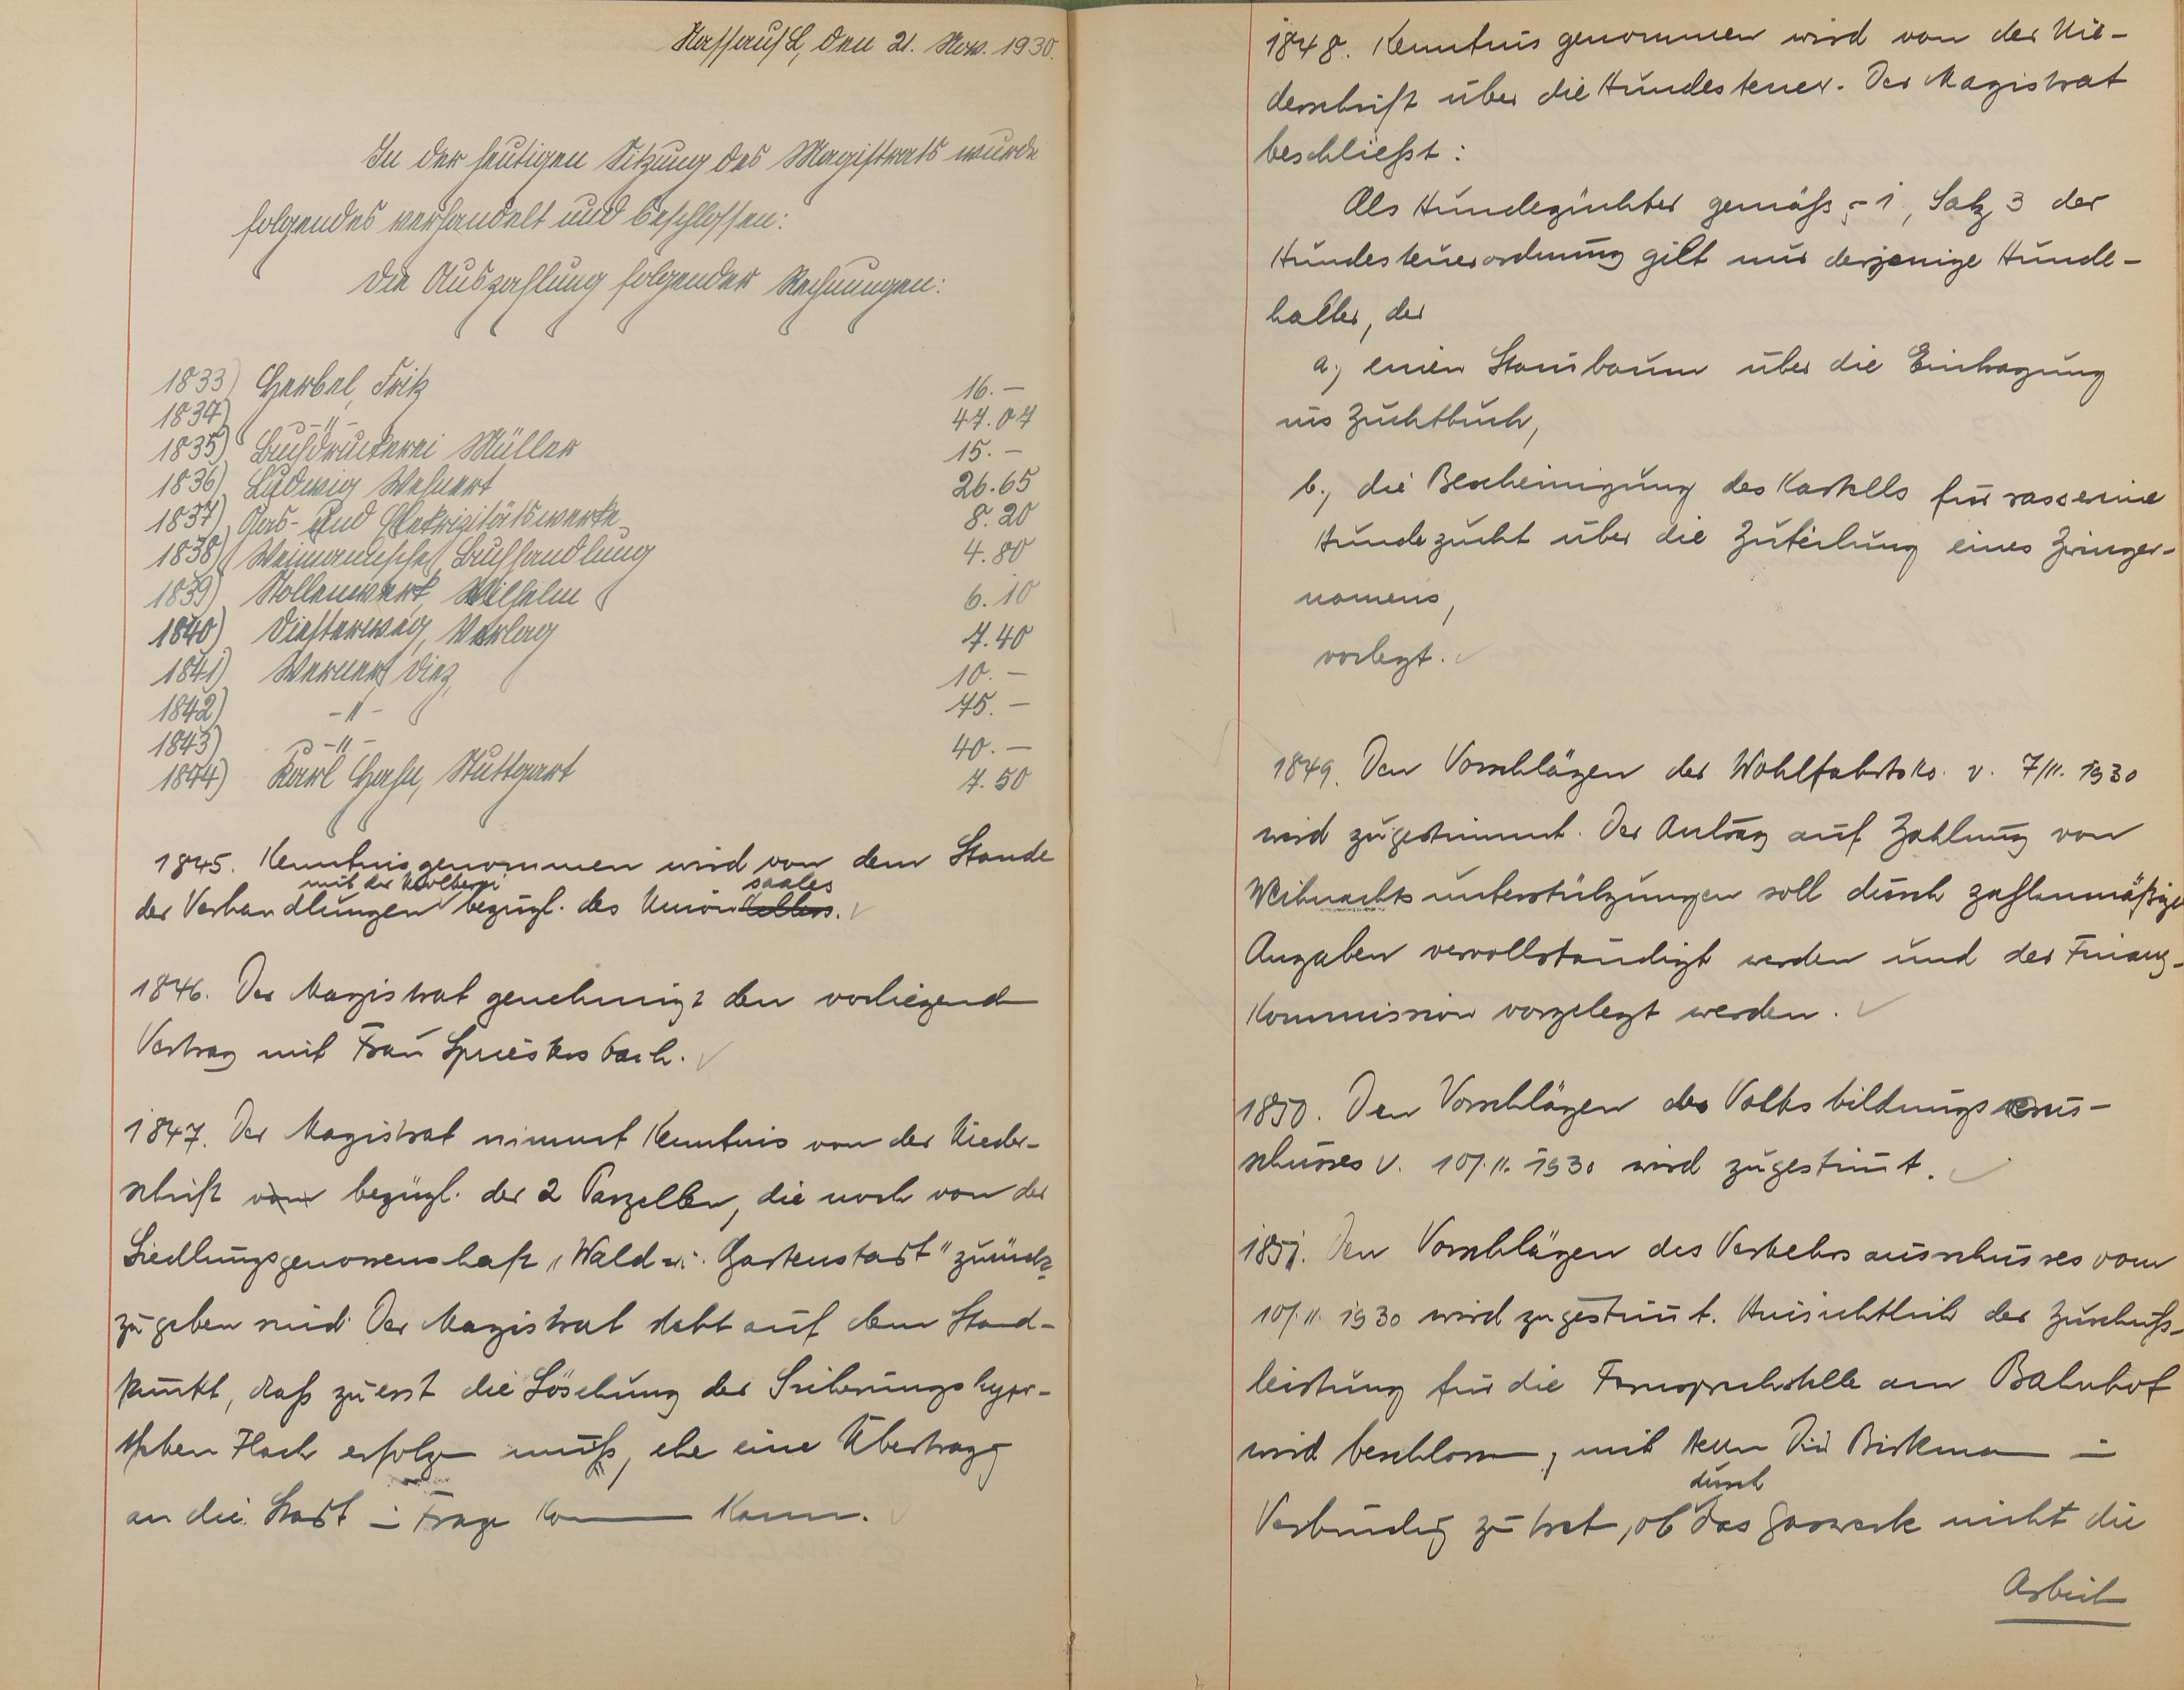 Nassau/L, den 21. Nov. 1930.
In der heutigen Sitzung des Magistrats wurde
folgendes verhandelt und beschlossen:
Die Auszahlung folgender Rechnungen:
1833) Herbel, Fritz 16.—
1834) -„- 47.07
1835) Buchdruckerei Müller 15.—
1836) Ludwig Wehnert 26.65
1837) Gas- und Elektrizitätswerke 8.20
1838) Buchhandlung 4.80
1839) Stollenwerk, Wilhelm 6.10
1840) Diesterweg, Verlag 7.40
1841) Werner, Diez, 10.—
1842) -„- 75.—
1843) -„- 40.—
1844) Karl Hahn, Stuttgart 7.50
1845. Kenntnis genommen wird von dem Stande
mit der saales
der Verhandlungen bezügl. des Union kellers.
1846. Der Magistrat genehmigt den vorliegend
Vertrag mit Frau Spriestersbach.
1847. Der Magistrat nimmt Kenntnis von der Nieder-
schrift vom bezügl. der 2 Parzellen, die noch von der
Siedlungsgenossenschaft „Wald u. Gartenstadt" zurück-
zugeben sind. Der Magistrat steht auf dem Stand-
punkt, daß zuerst die Löschung der Sicherungshypo-
theken Flach erfolgen muß, ehe eine Übertragg
an die Stadt in Frage kommen kann.
1848. Kenntnis genommen wird von der Nie-
derschrift über die Hundesteuer. Der Magistrat
beschließt:
Als Hundezüchter gemäß § 1, Satz 3 der
Hundesteuerordnung gilt nur derjenige Hunde-
halter, der
a, einen Stam̄baum über die Eintragung
ins Zuchtbuch,
b, die Bescheinigung des Kartells für rassereine
Hundezucht über die Zuteilung eines Zwinger-
namens,
vorlegt.
1849. Den Vorschlägen der Wohlfahrtsko. v. 7/11. 1930
wird zugestimmt. Der Antrag auf Zahlung von
Weihnachtsunterstützungen soll durch zahlenmäßige
Angaben vervollständigt werden und der Finanz-
Kommission vorgelegt werden.
1850. Den Vorschlägen des Volksbildungsaus-
schusses v. 10/11. 1930 wird zugestim̄t.
1851. Den Vorschlägen des Verkehrsausschusses vom
10/11. 1930 wird zugestim̄t. Hinsichtlich der Zuschuß-
leistung für die Fernsprechstelle am Bahnhof
wird beschlossen, mit Herrn Dir. Birkman in
durch
Verbindg zu tret, ob das Gaswerk nicht die
Arbeit